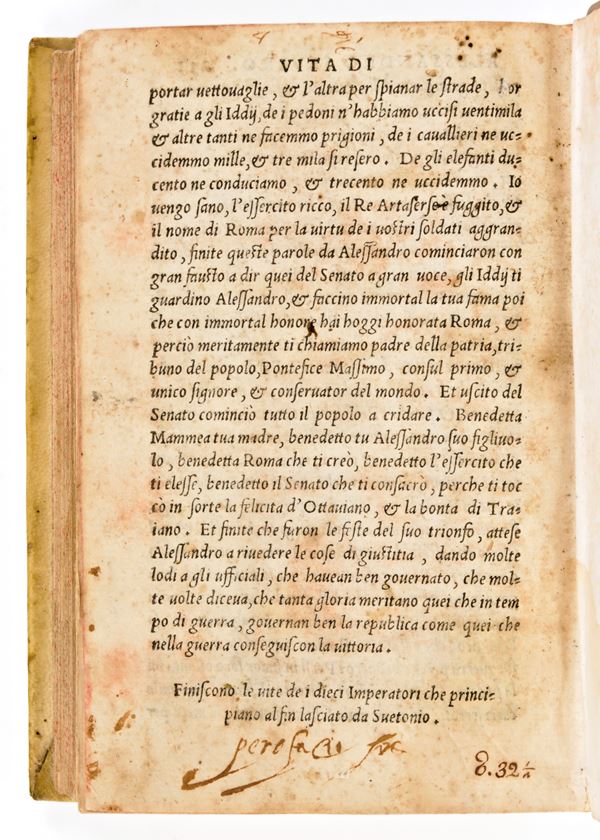 VITA DI
portar uettouaglie, & l'altra per spianar le strade, hor
gratie a gli Iddij, de i pedoni n'habbiamo uccisi uentimila
& altre tanti ne facemmo prigioni, de i cauallieri ne uc-
cidemmo mille, & tre mila si resero. De gli elefanti du-
cento ne conduciamo, & trecento ne uccidemmo. Io
uengo sano, l'essercito ricco, il Re Artaserse è fuggito, &
il nome di Roma per la uirtu de i uostri soldati aggran-
dito, finite queste parole da Alessandro cominciaron con
gran fausto a dir quei del Senato a gran uoce, gli Iddij ti
guardino Alessandro, & faccino immortal la tua fama poi
che con immortal honore hai hoggi honorata Roma, &
perciò meritamente ti chiamiamo padre della patria, tri-
buno del popolo, Pontefice Massimo, consul primo, &
unico signore, & conseruator del mondo. Et uscito del
Senato cominciò tutto il popolo a cridare. Benedetta
Mammea tua madre, benedetto tu Alessandro suo figliuo-
lo, benedetta Roma che ti creò, benedetto l'essercito che
ti elesse, benedetto il Senato che ti consacrò, perche ti toc
cò in sorte la felicita d'Ottauiano, & la bonta di Tra-
iano. Et finite che furon le feste del suo trionfo, attese
Alessandro a riuedere le cose di giustitia, dando molte
lodi a gli ufficiali, che hauean ben gouernato, che mol-
te uolte diceua, che tanta gloria meritano quei che in tem
po di guerra, gouernan ben la republica come quei che
nella guerra conseguiscon la uittoria.
Finiscono le uite de i dieci Imperatori che princi-
piano al fin lasciato da Suetonio.
32½